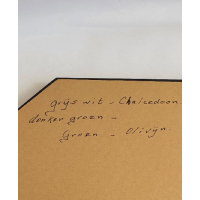 grijs wit - Chalcedoon.
donker groen -
Groen - olivijn